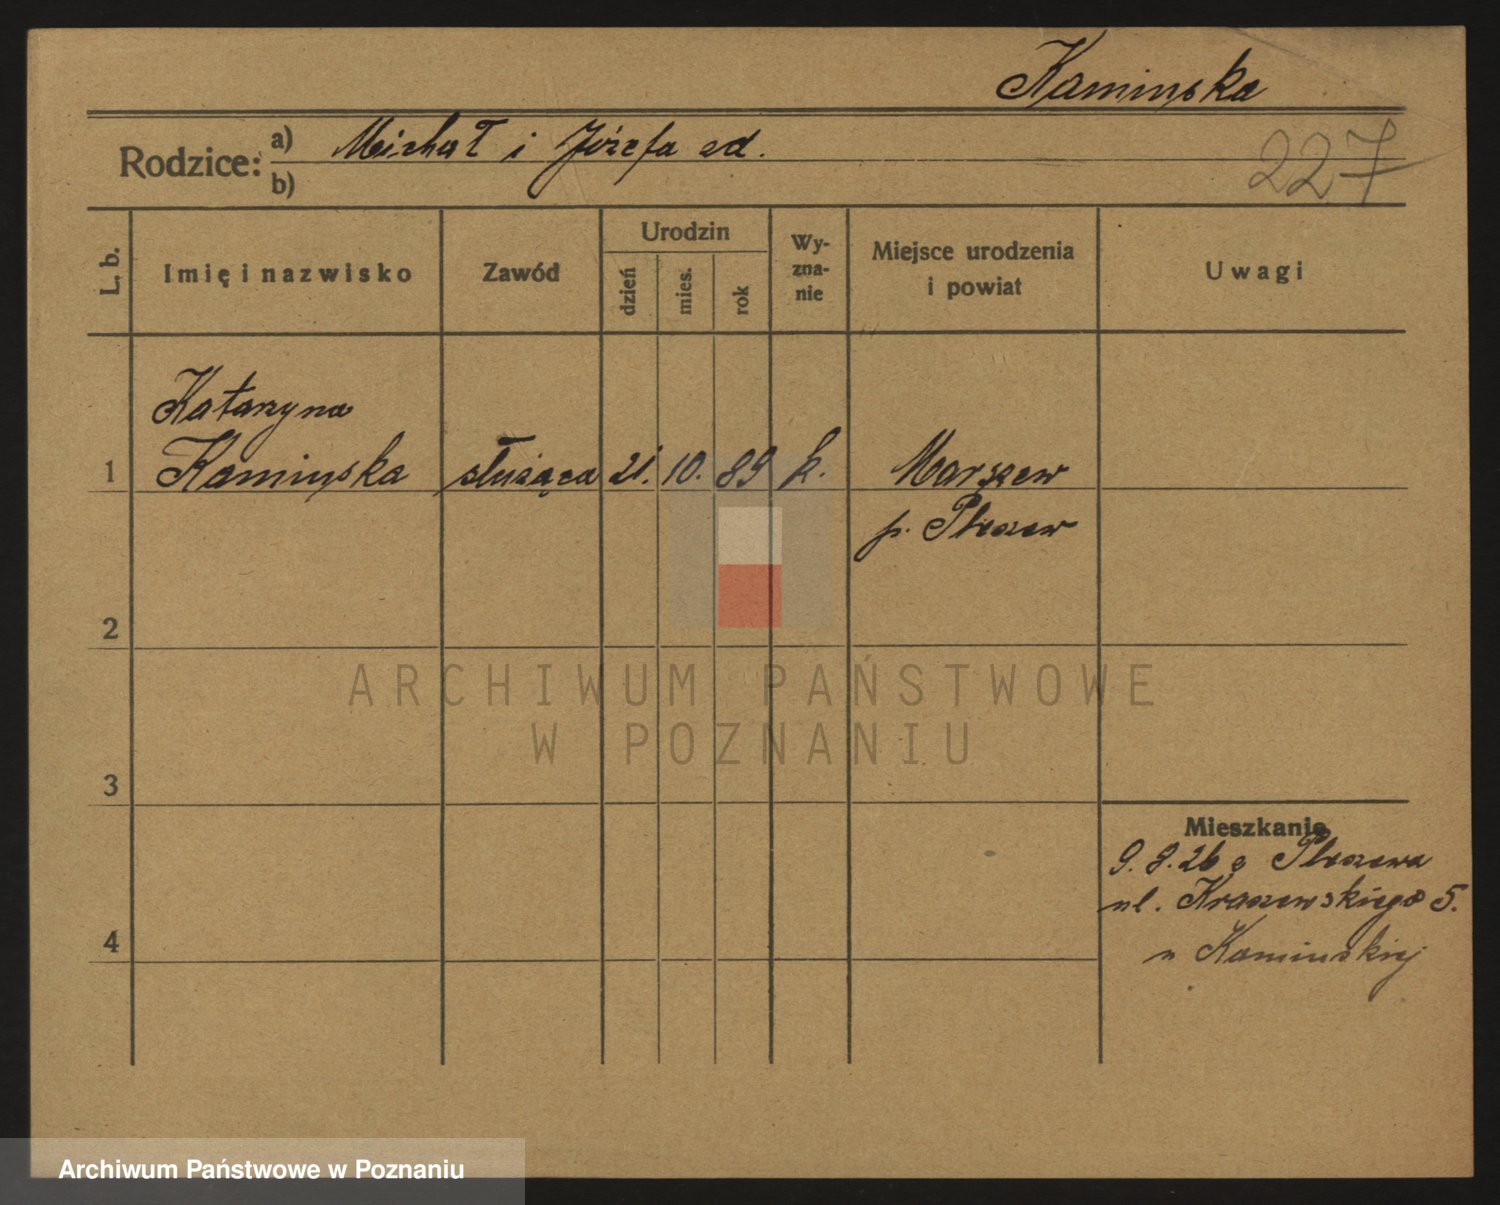 Kaminska
Rodzice: a) Michał i Józefa ed.
b)
227
L. b.
Imię i nazwisko
Zawód
Urodzin
dzień
mies.
rok
Wy-
zna-
nie
Miejsce urodzenia
i powiat
Uwagi
Katarzyna
1 Kaminska służąca 21. 10. 89 k. Marszew
p. Pleszew
2
3
4
Mieszkanie
9. 8. 26 z Pleszewa
ul. Kraszewskiego 5.
u Kaminskiej
ARCHIWUM PAŃSTWOWE
W POZNANIU
Archiwum Państwowe w Poznaniu